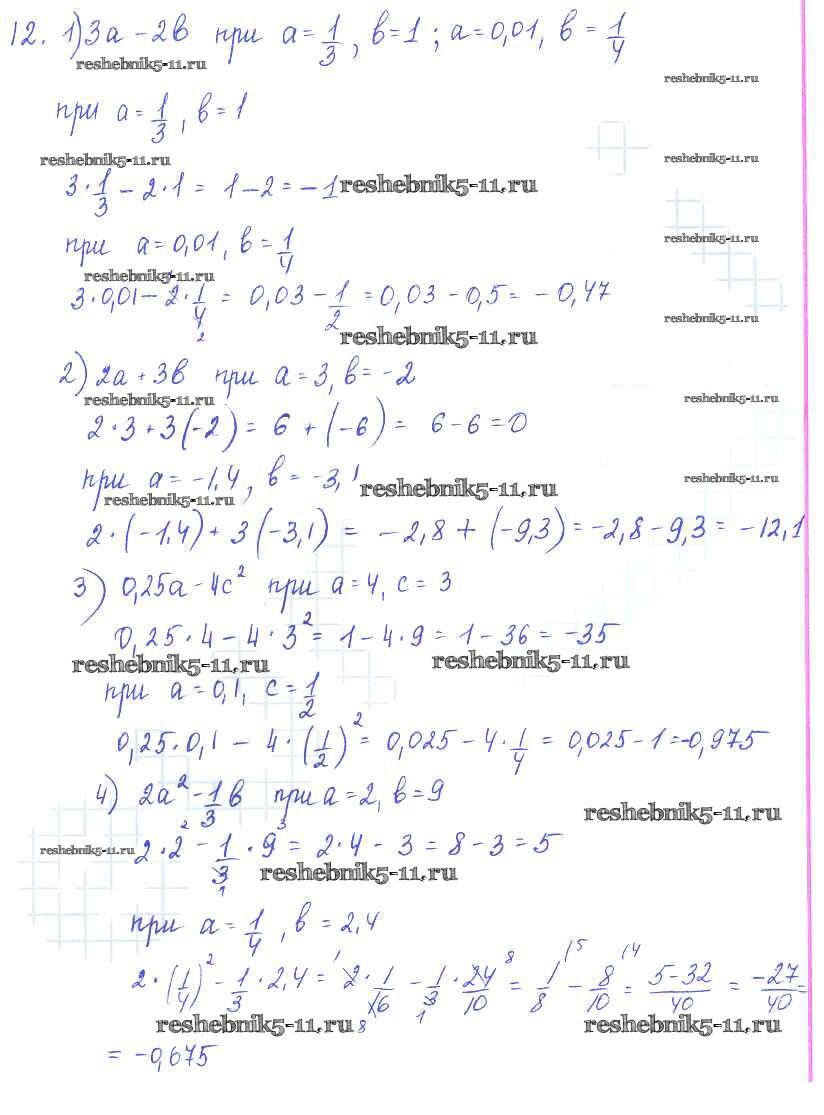 12. 1) 3a - 2b при a = 1/3, b = 1; a = 0,01, b = 1/4
reshebnik5-11.ru reshebnik5-11.ru
при a = 1/3, b = 1
reshebnik5-11.ru reshebnik5-11.ru
3 · 1/3 - 2 · 1 = 1 - 2 = -1 reshebnik5-11.ru
при a = 0,01, b = 1/4 reshebnik5-11.ru
reshebnik5-11.ru
3 · 0,01 - 2 · 1/4 = 0,03 - 1/2 = 0,03 - 0,5 = -0,47
2 reshebnik5-11.ru reshebnik5-11.ru
2) 2a + 3b при a = 3, b = -2
reshebnik5-11.ru reshebnik5-11.ru
2 · 3 + 3(-2) = 6 + (-6) = 6 - 6 = 0
при a = -1,4, b = -3,1 reshebnik5-11.ru reshebnik5-11.ru
reshebnik5-11.ru
2 · (-1,4) + 3(-3,1) = -2,8 + (-9,3) = -2,8 - 9,3 = -12,1
3) 0,25a - 4c² при a = 4, c = 3
0,25 · 4 - 4 · 3² = 1 - 4 · 9 = 1 - 36 = -35
reshebnik5-11.ru reshebnik5-11.ru
при a = 0,1, c = 1/2
0,25 · 0,1 - 4 · (1/2)² = 0,025 - 4 · 1/4 = 0,025 - 1 = -0,975
4) 2a² - 1/3 b при a = 2, b = 9 reshebnik5-11.ru
reshebnik5-11.ru 2 · 2² - 1/3 · 9³ = 2 · 4 - 3 = 8 - 3 = 5
1 reshebnik5-11.ru
при a = 1/4, b = 2,4
2 · (1/4)² - 1/3 · 2,4 = ¹2 · 1/16 - 1/3 · 24⁸/10 = 1/8 ⁽⁵ - 8/10 ⁽⁴ = 5-32/40 = -27/40 =
reshebnik5-11.ru 8 1 reshebnik5-11.ru
= -0,675